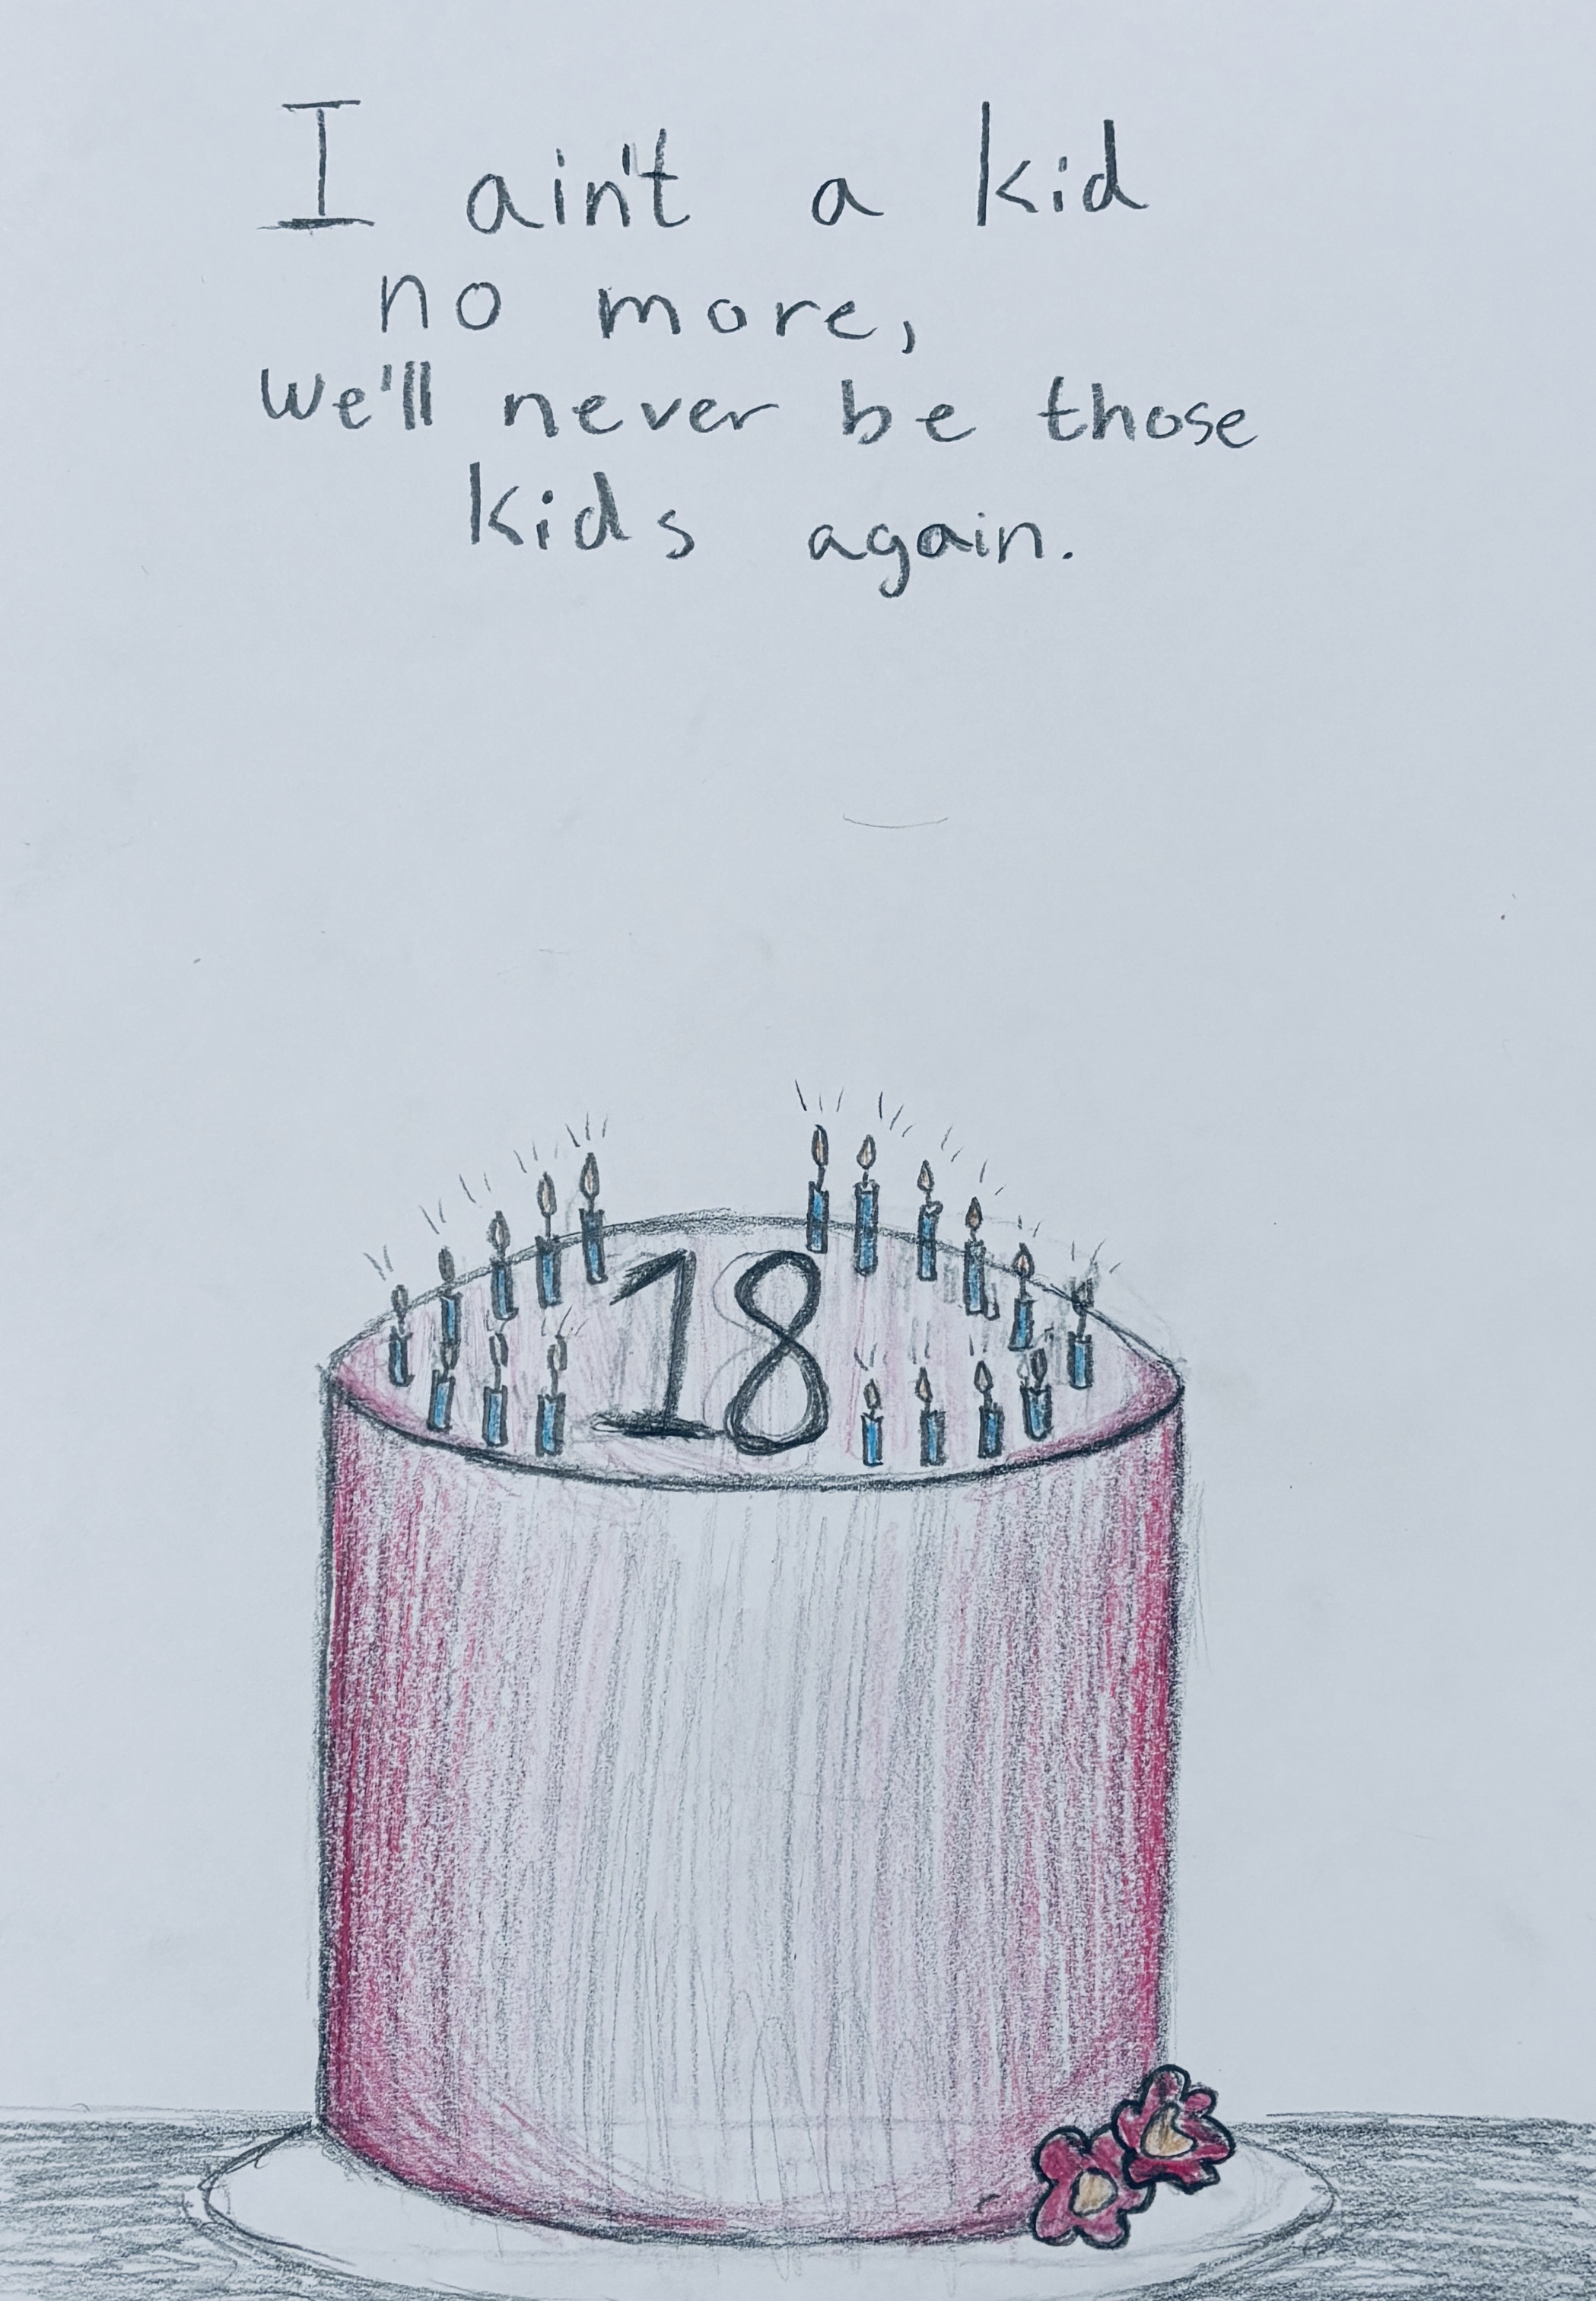 I ain't a kid
no more,
we'll never be those
kids again.
18